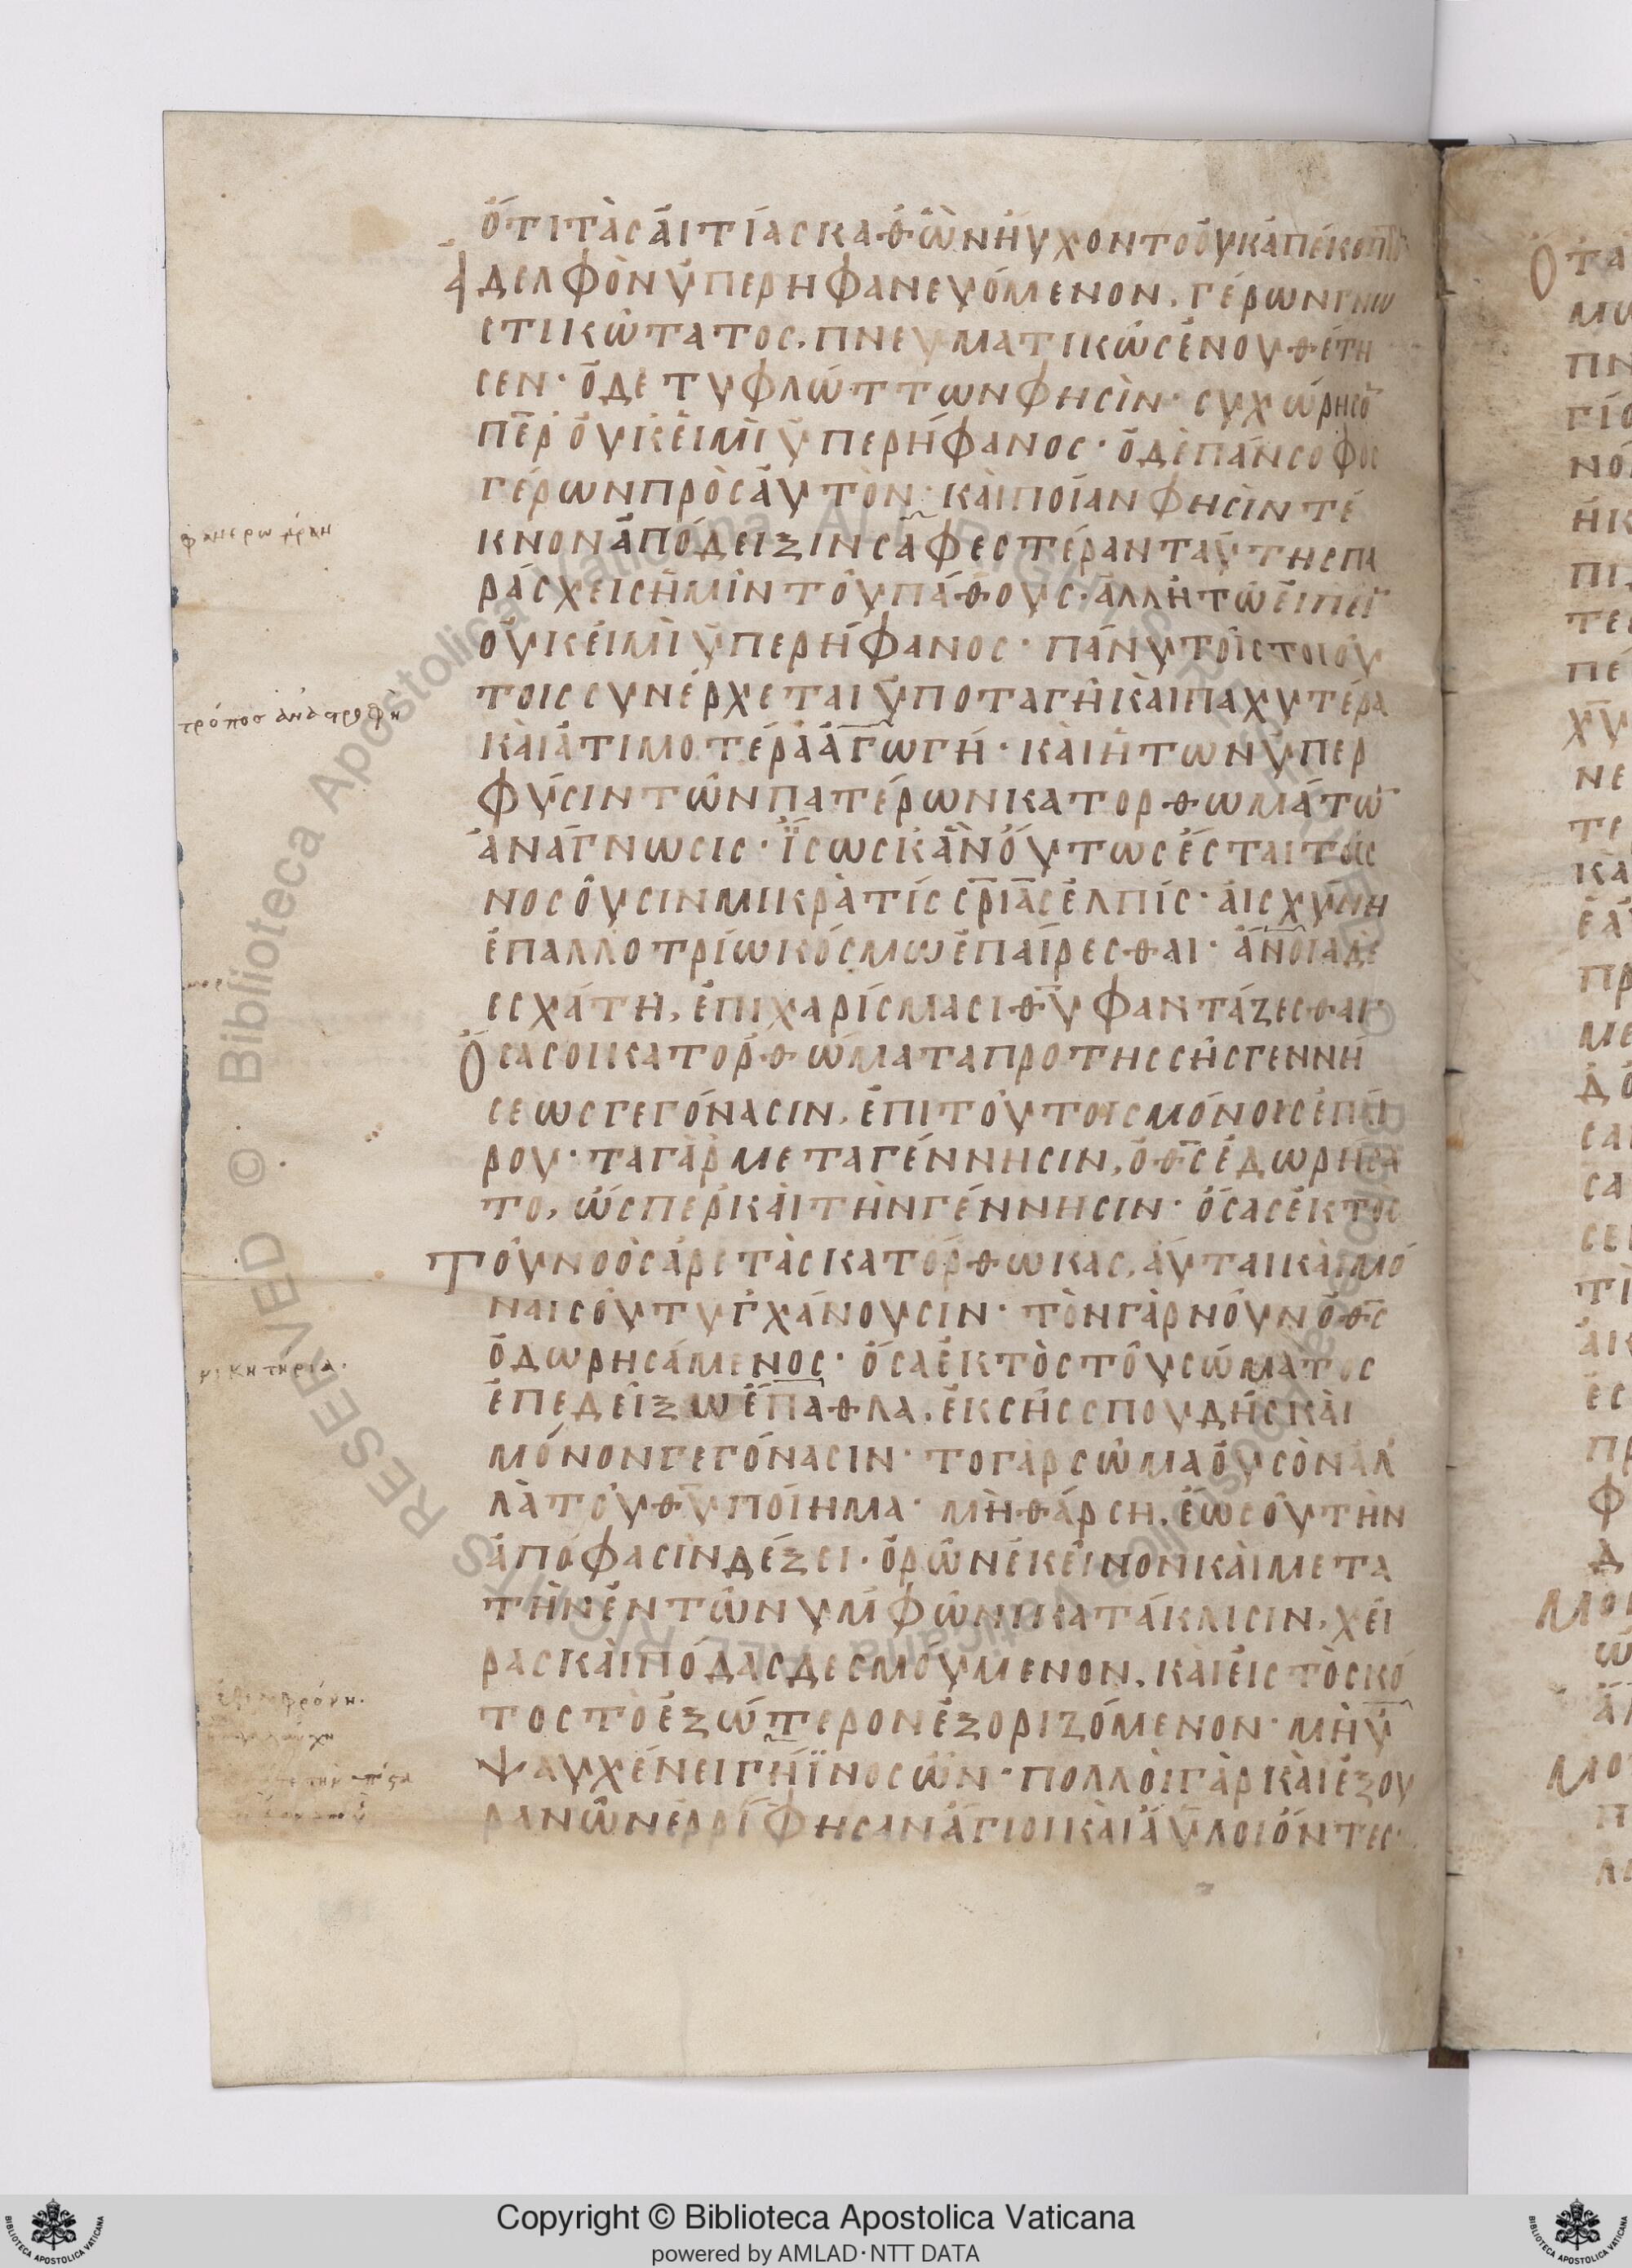 ὅτι τὰς αἰτίας καθ' ὧν ηὔχοντο οὐκ ἀπέκοπτ
ἀδελφὸν ὑπερηφανευόμενον, γέρων γνω
στικώτατος, πνευματικῶς ἐνουθέτη
σεν· ὁ δὲ τυφλώττων φησὶν· συχώρησό
περ οὐκ εἰμὶ ὑπερήφανος· ὁ δὲ πάνσοφος
γέρων πρὸς αὐτὸν· καὶ ποίαν φησὶν τέ
κνον ἀπόδειξιν σαφεστέραν ταύτης πα
ράσχεις ἡμῖν τοῦ πάθους· ἀλλ' ἢ τῶ εἰπεῖ
οὐκ εἰμὶ ὑπερήφανος· πάνυ τοῖς τοιού
τοις συνέρχεται ὑποταγὴ καὶ παχυτέρα
καὶ ἀτιμοτέρα ἀγωγή· καὶ ἡ των ὑπερ
φύσιν τῶν πατέρων κατορθωμάτω
ἀνάγνωσις· ἴσως κἂν οὕτως ἔσται τοῖς
νοσοῦσιν μικρὰ τίς σ̅ρ̅ι̅α̅ς ἐλπίς· αἰσχύνη
ἐπ' ἀλλοτρίω κόσμω ἐπαίρεσθαι· ἄνοια δὲ
εσχάτη, ἐπι χαρίσμασι θ̅υ̅ φαντάζεσθαι·
Ὅσα σοι κατορθώματα προ της σῆς γεννή
σεως γεγόνασιν, ἐπι τούτοις μόνοις ἐπαί
ρου· τα γὰρ μετα γέννησιν, ὁ θ̅ς̅ ἐδωρήσα
το, ὥσπερ καὶ τὴν γέννησιν· ὅσας ἐκτος
τοῦ νοὸς ἀρετὰς κατόρθωκας, αὗται καὶ μό
ναι σοῦ τυγχάνουσιν· τὸν γὰρ νοῦν ὁ θ̅ς̅
ὁ δωρησάμενος· ὅσα ἐκτὸς τοῦ σώματος
ἐπεδείξω ἔπαθλα, ἐκ σῆς σπουδῆς καὶ
μόνον γεγόνασιν· το γὰρ σῶμα οὐ σὸν ἀλ
λὰ τοῦ θ̅υ̅ ποίημα· μὴ θάρση, ἕως οὗ τὴν
ἀπόφασιν δέξει· ὁρῶν ἐκεῖνον καὶ μετα
τὴν ἐν τῶ νυμφῶνι κατάκλισιν, χεί
ρας καὶ πόδας δεσμούμενον, καὶ εἰς τὸ σκό
τος τὸ ἐξώτερον ἐξοριζόμενον· μὴ ὑ
ψαυχένει γήϊνος ὢν· πολλοὶ γὰρ καὶ ἐξ ου
ρανῶν ἐρρίφησαν ἅγιοι καὶ ἄϋλοι ὄντες·
τρόποσ ἀναστροφὴ
νικητήρια·